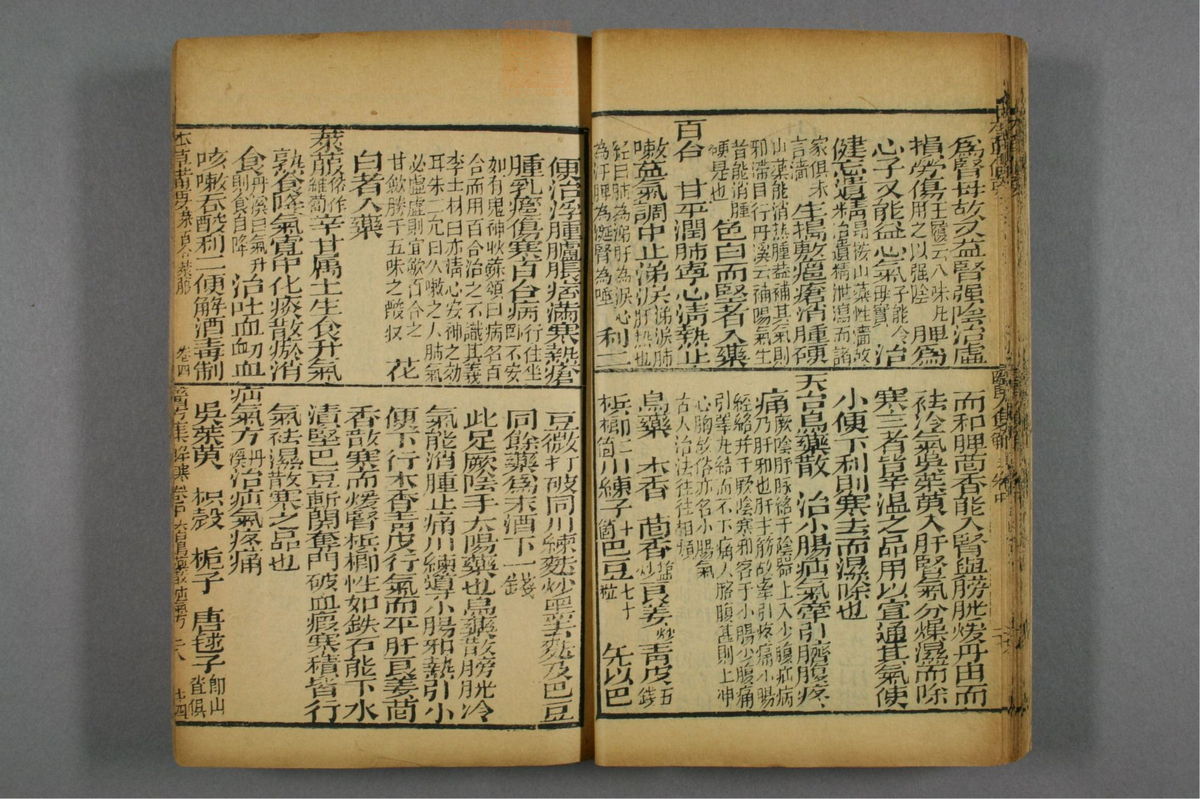 為腎母故又益腎强陰治虛
損勞傷王履云八味丸用之以强陰 脾為
心子又能益心氣子能令母實 治
健忘遺精昂按山藥性濇故治遺精泄瀉而諸
家俱未言濇 生搗敷癰瘡消腫硬
山藥能消熱腫蓋補其氣則邪滯自行丹溪云補陽氣生者能消腫
硬是也 色白而堅者入藥
百合 甘平潤肺寧心淸熱止
嗽益氣調中止涕淚涕淚肺肝熱也
經曰肺為涕肝為淚心為汗脾為涎腎為唾 利二
便治浮腫臚脹痞滿寒熱瘡
腫乳癰傷寒百合病行住坐臥不安
如有鬼神狀蘇頌曰病名百合而用百合治之不識其義
李士材曰亦淸心安神之効耳朱二允曰久嗽之人肺氣
必虛虛則宜歛百合之甘歛勝于五味之酸收 花
白者入藥
萊菔俗作蘿蔔 辛甘屬土生食升氣
熟食降氣寬中化痰散瘀消
食丹溪曰氣升則食自降 治吐血衄血
咳嗽吞酸利二便解酒毒制
而和脾茴香能入腎與膀胱煖丹田而
祛冷氣吳茱萸入肝腎氣分燥濕而除
寒三者皆辛温之品用以宣通其氣使
小便下利則寒去而濕除也
天台烏藥散 治小腸疝氣牽引臍腹疼
痛厥陰肝脉絡于陰器上入少腹疝病乃肝邪也肝主筋故牽引疼痛小腸
經絡并于厥陰寒邪客于小腸少腹痛引睪丸結而不下痛人䐃腹甚則上冲
心胸故俗亦名小腸氣古人治法往往相類
烏藥 木香 茴香鹽炒 良姜炒 靑皮五錢
梹榔二箇 川練子十箇 巴豆七十粒 先以巴
豆微打破同川練麩炒黑去麩及巴豆
同餘藥為末酒下一錢
此足厥陰手太陽藥也烏藥散膀胱冷
氣能消腫止痛川練導小腸邪熱引小
便下行木香靑皮行氣而平肝良姜茴
香散寒而煖腎梹榔性如鉄石能下水
潰堅巴豆斬関奪門破血瘕寒積皆行
氣祛濕散寒之品也
疝氣方丹溪 治疝氣疼痛
吳茱萸 枳殼 梔子 唐毬子卽山查俱